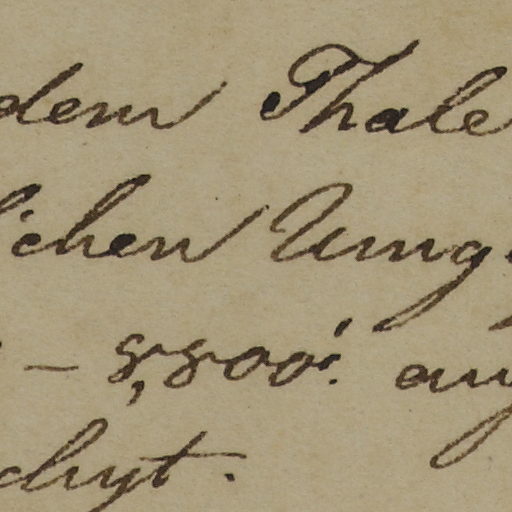 dem Thale
lichen Umg
– 8,800'. aug
chgt.